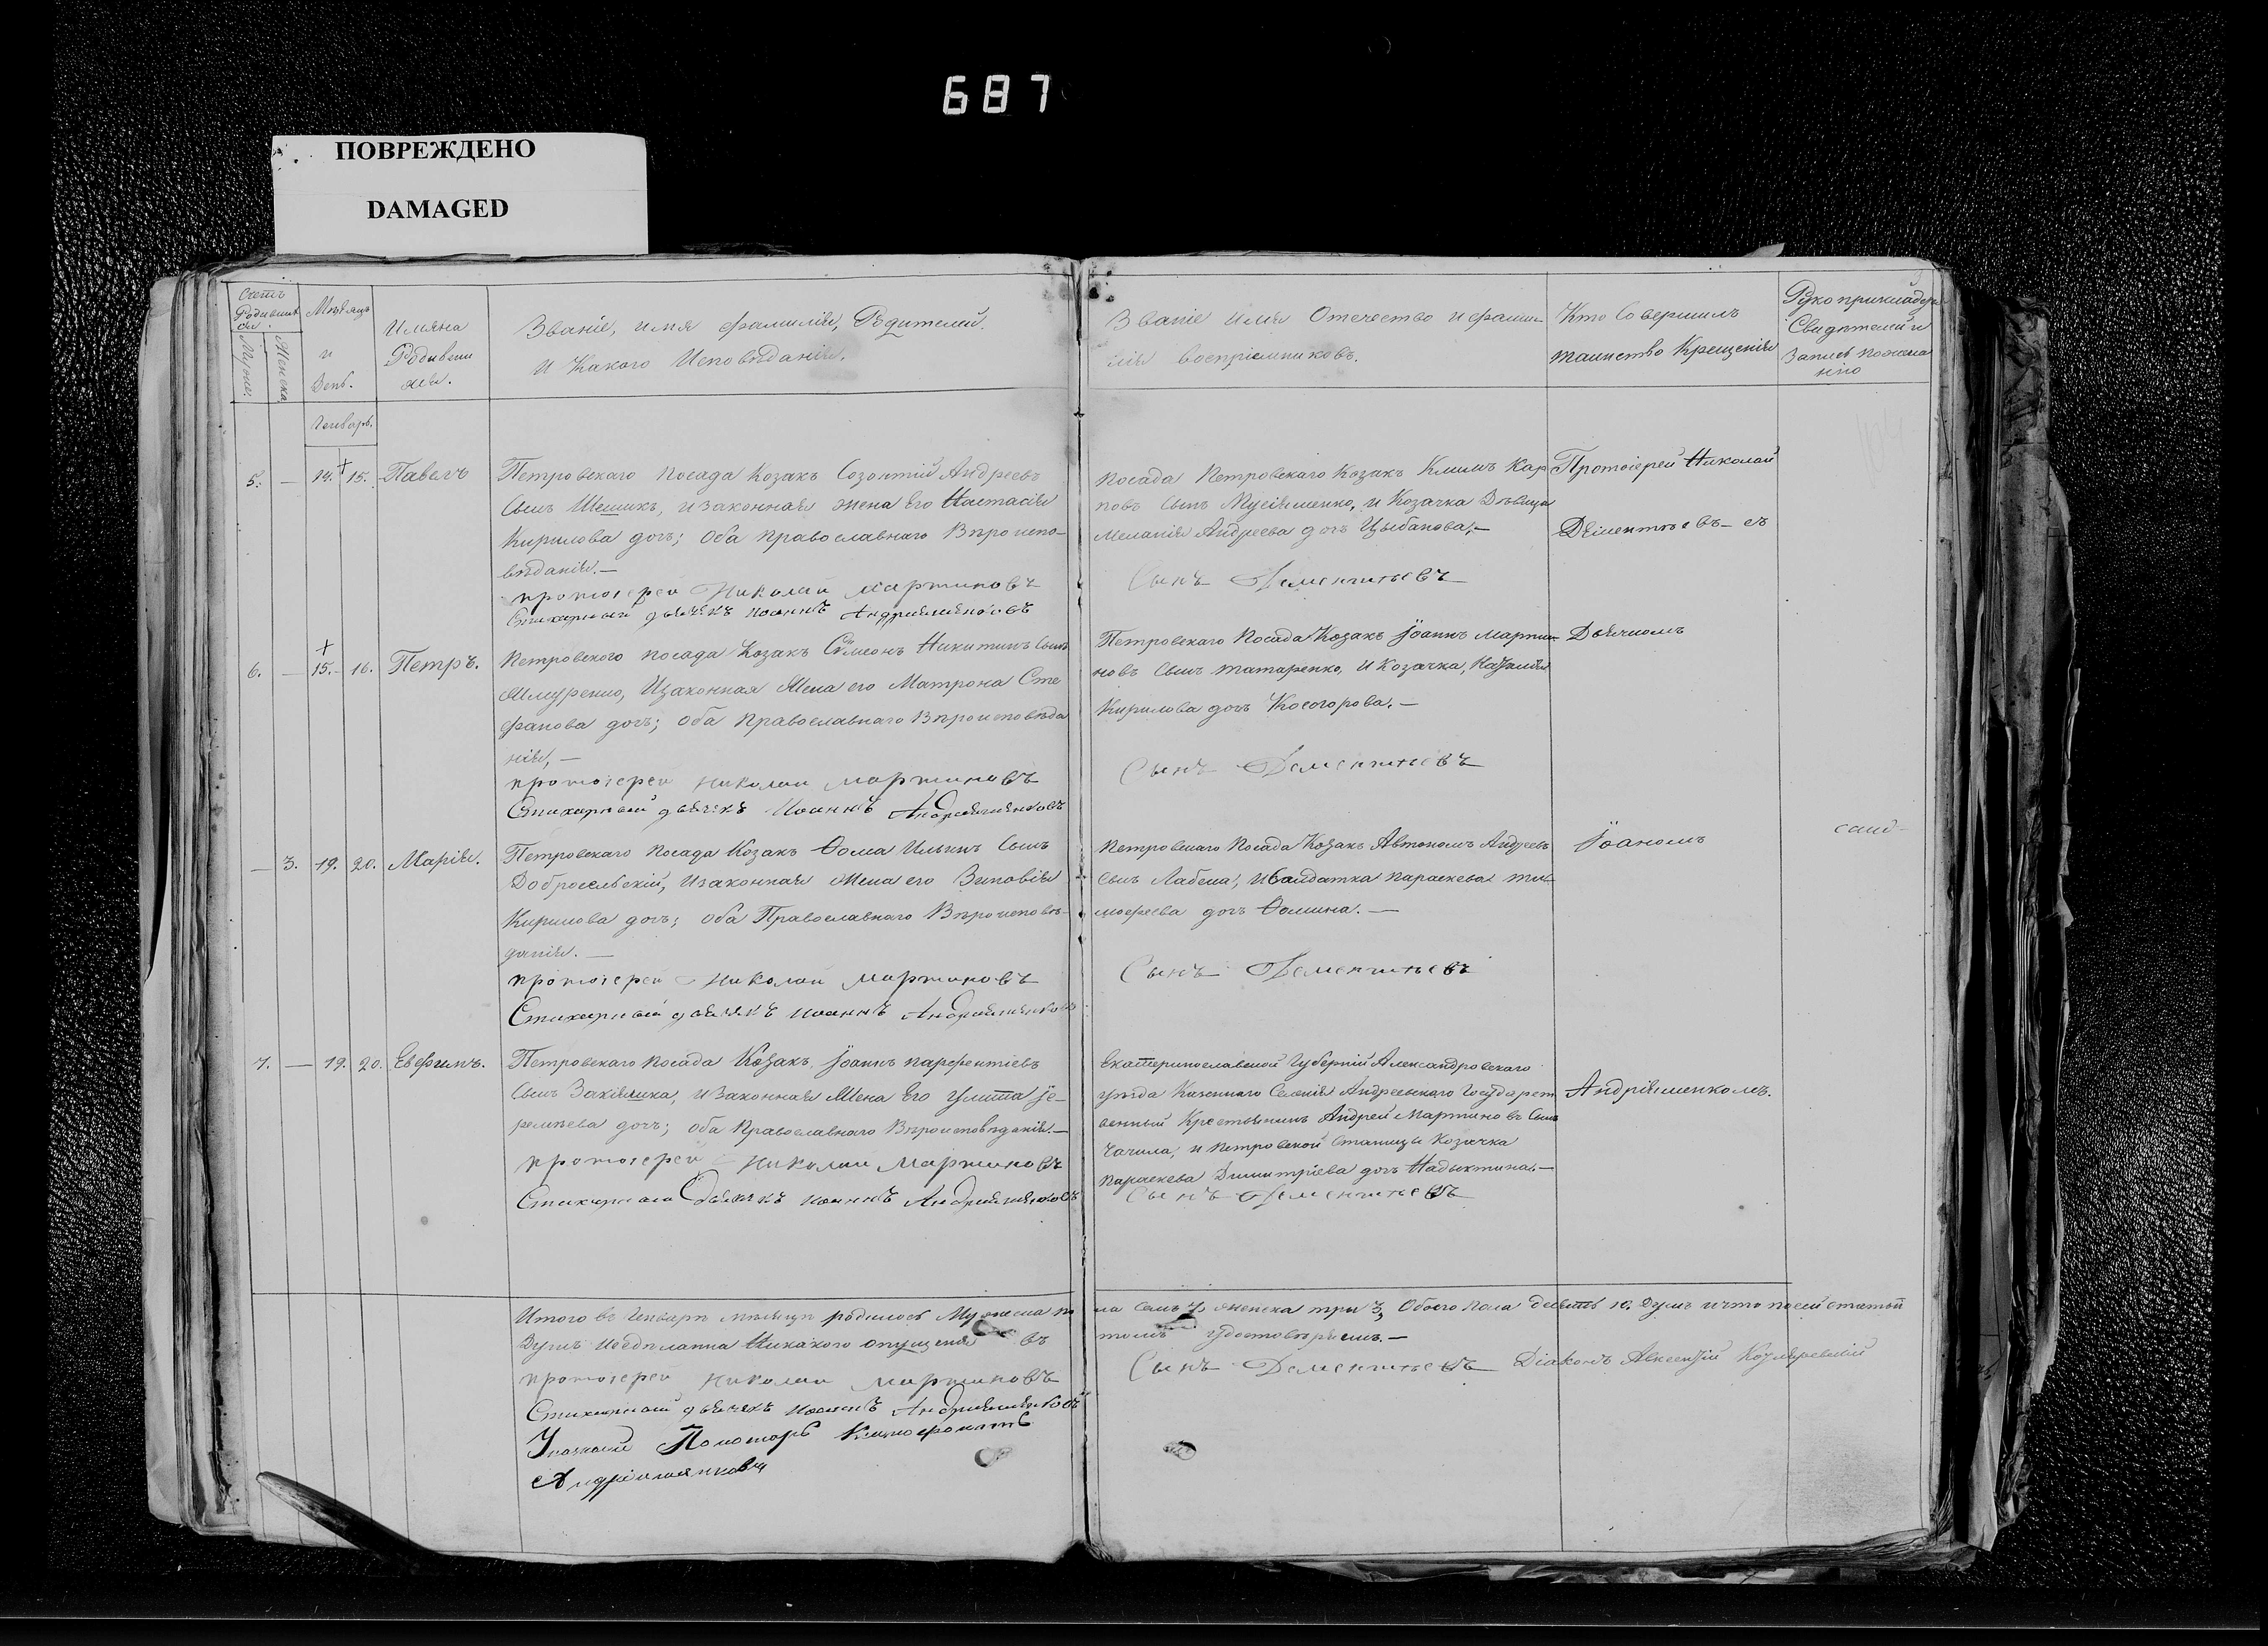 687
ПОВРЕЖДЕНО
DAMAGED
Счетъ
Родивших
ся.
Мужес.
Женска
Мѣсяцъ
и
День.
Имяна
Родивши
хся.
Званіе, имя фамиліи, Родителей.
и Какого Исповѣданія.
Званіе имя Отечество и фами-
лія воспріемниковъ.
Кто Совершилъ
таинство Крещенія
Рукоприкладст
Свидѣтелей и
запись пожела
нію
Генварь.
5. — 14. 15. Павелъ
Петровскаго посада Козакъ Созонтій Андреевъ
Сынъ Шешикъ, и законная жена Его Настасія
Кирилова дочь; Оба православнаго Вѣроиспо-
вѣданія.—
протоіерей Николай Мартиновъ
Стихарный дьячекъ Иоаннъ Андріяшенковъ
посада Петровскаго Козакъ Климъ Кар
повъ Сынъ Мусіяшенко, и Козачка Дѣвица
Меланія Андреева дочь Цыбанова,—
Сынъ Деменчтьевъ
Протоіерей Николай
Дементьевъ— съ
6. — 15.— 16. Петръ.
Петровского посада Козакъ Сѵмеонъ Никитинъ Сынъ
Шмуренко, И законная Жена его Матрона Сте
фанова дочь; оба православнаго Вѣроисповѣда
нія,—
протоіерей николай мартиновъ
Стихарный дьячекъ Иоаннъ Андріяшенковъ
Петровскаго Посада Козакъ Іоаннъ Марти-
новъ Сынъ татаренко, И Козачка,
Кирилова дочь Косогорова.—
Сынъ Деменчтьевъ
Дьячкомъ
— 3. 19. 20. Марія.
Петровскаго посада Козакъ Ѳома Ильинъ Сынъ
Добросельскій, И законная Жена его Зиновія
Кирилова дочь; оба Православнаго Вѣроисповѣ-
данія.—
протоіерей Николай Мартиновъ
Стихарный дьячекъ Иоаннъ Андріяшенковъ
Петровскаго Посада Козакъ Автономъ Андреевъ
Сынъ Лабена, И Салдатка параскева ти-
мофеева дочь Ѳомина.—
Сынъ Деменчтьевъ
Іоаномъ
7. — 19. 20. Евфимъ.
Петровскаго посада Козакъ, Іоаннъ парфентіевъ
Сынъ Закіяшка, и Законная Жена Его Улитта Іе-
ремѣева дочь; оба Православнаго Вѣроисповѣданія.—
протоіерей Николай Мартиновъ
Стихарный Дьячекъ Иоаннъ Андріяшенковъ
Екатеринославской Губерніи Александровскаго
уѣзда Казеннаго Селенія Андреевскаго Государст
венный Крестьянинъ Андрей Мартиновъ Сынъ
Чачила, и Петровской Станицы Козачка
параскева Димитріева дочь Надыктина.—
Сынъ Деменчтьевъ
Андріяшенкомъ.
Итого въ Генварѣ мѣсяцѣ родилось Мужеска по
ла Семь 7, женска три 3, Обоего пола десять 10. Душъ и что по сей статьи
Душъ Никакого опущенія въ
томъ удостовѣряемъ.—
протоіерей николай мартиновъ
Сынъ Деменчтьевъ Діаконъ Авксентій
Стихарный дьячекъ Иоаннъ Андріяшенковъ
Указный Пономарь Ксенофонтъ
Андріяшенковъ